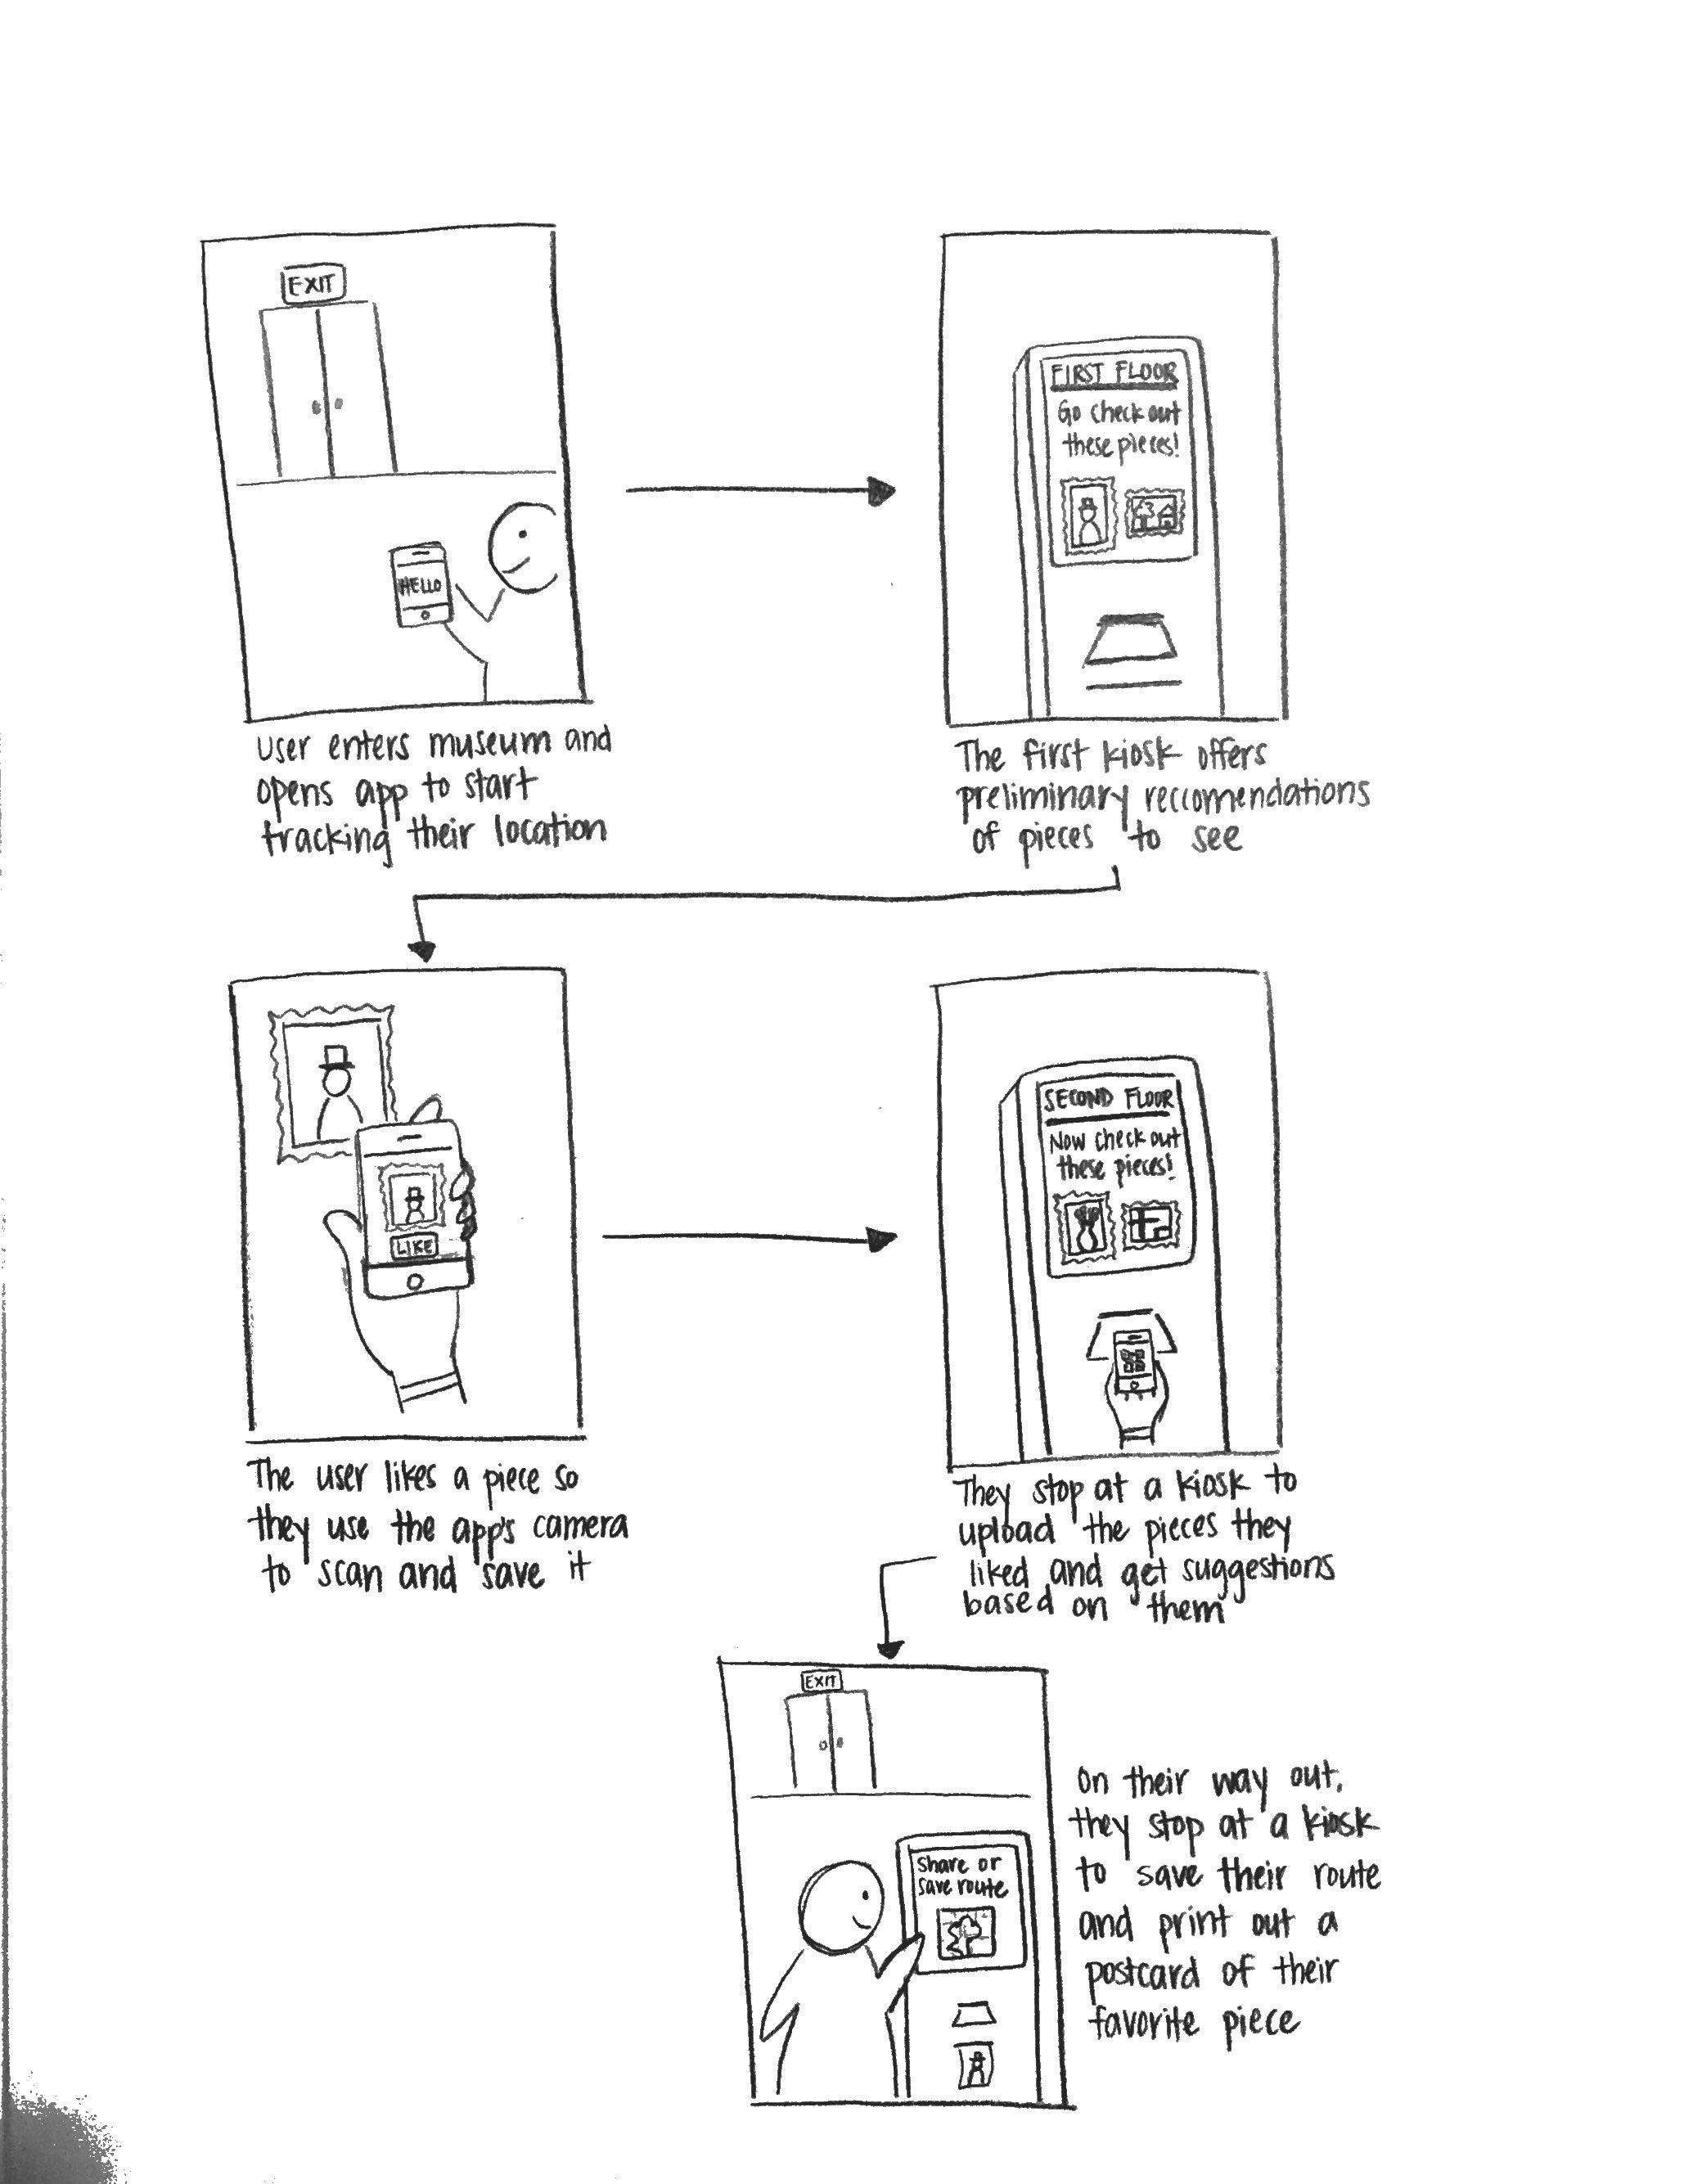 EXIT
HELLO
User enters museum and
opens app to start
tracking their location
FIRST FLOOR
Go check out
these pieces!
The first kiosk offers
preliminary reccomendations
of pieces to see
LIKE
The user likes a piece so
they use the app's camera
to scan and save it
SECOND FLOOR
Now check out
these pieces!
They stop at a kiosk to
upload the pieces they
liked and get suggestions
based on them
EXIT
Share or
save route
On their way out,
they stop at a kiosk
to save their route
and print out a
postcard of their
favorite piece